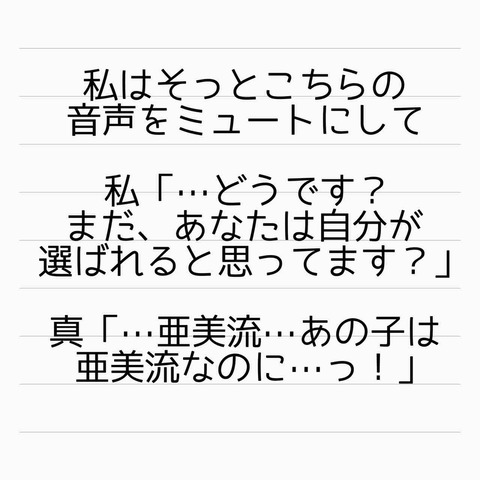 私はそっとこちらの
音声をミュートにして
私「…どうです？
まだ、あなたは自分が
選ばれると思ってます？」
真「…亜美流…あの子は
亜美流なのに…っ！」